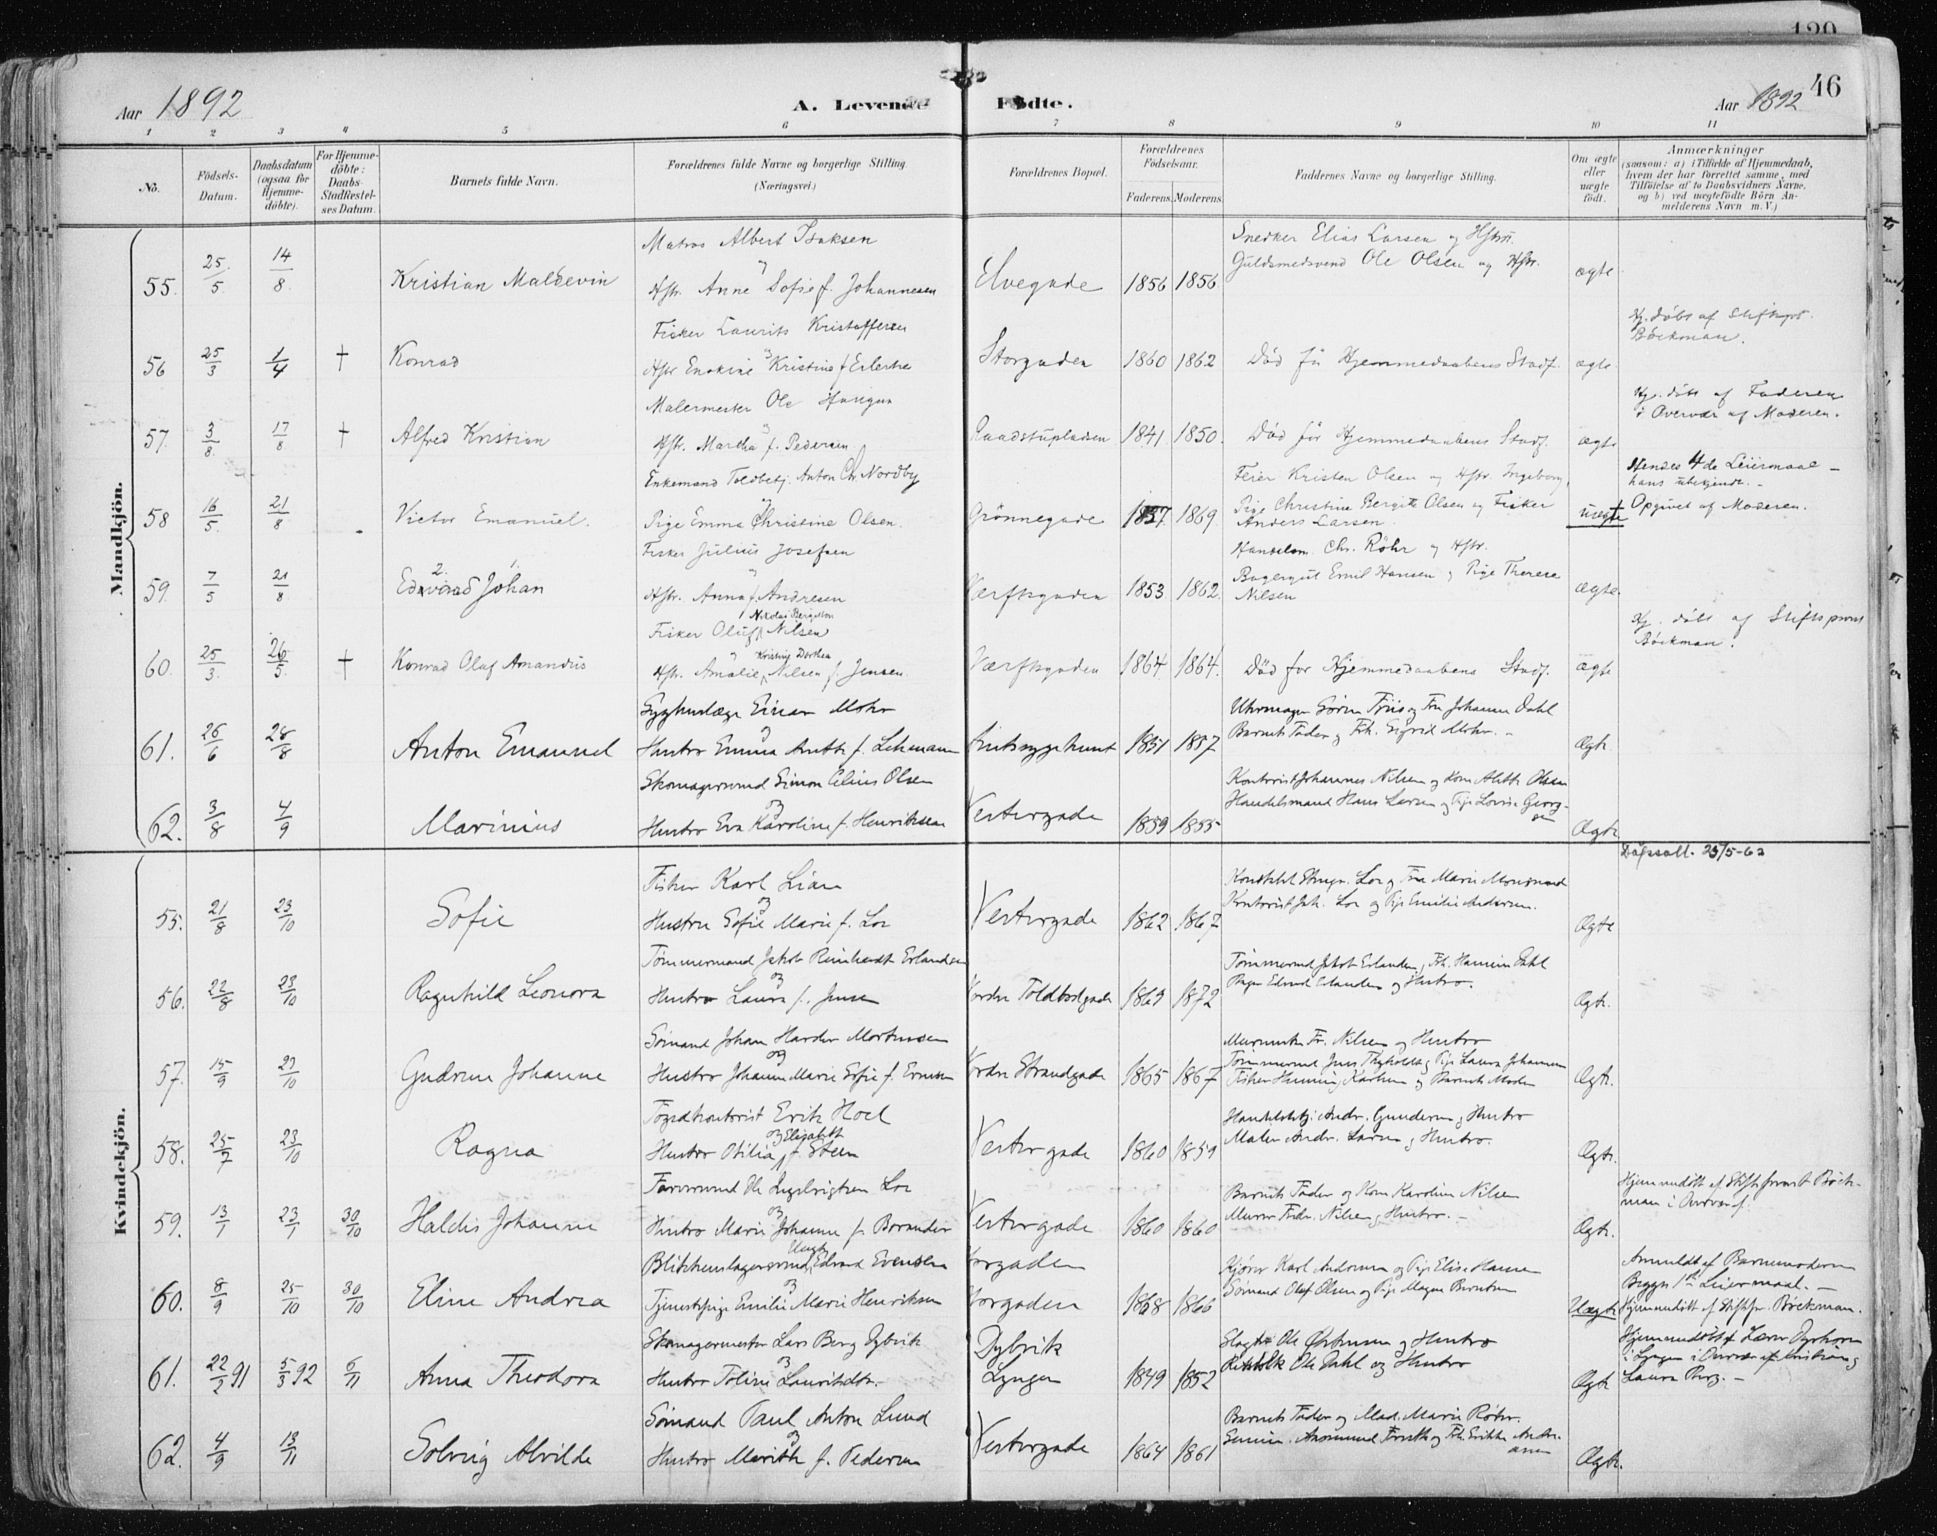 120
46
Aar 1892
A. Levende Fødte.
Aar 1892
1 2 3 4 5 6 7 8 9 10 11
No.
Fødsels-Datum.
Daabsdatum (ogsaa for Hjemme-døbte).
For Hjemme-døbte: Daabs-Stadfæstel-ses Datum.
Barnets fulde Navn.
Forældrenes fulde Navne og borgerlige Stilling
(Næringsvei.)
Forældrenes Bopæl.
Forældrenes Fødselsaar.
Faderens. Moderens.
Faddernes Navne og borgerlige Stilling.
Om ægte eller uægte født.
Anmærkninger
(saasom: a) i Tilfælde af Hjemmedaab,
hvem der har forrettet samme, med
Tilføielse af to Daabsvidners Navne,
og b) ved uægtefødte Børn An-
melderens Navn m.V.)
Mandkjön.
Matros Albert Isaksen
Snedker Elias Larsen og Hstr.
55. 25/5 14/8 Kristian Maldevin
og
Hstr. Anne Sofie f. Johannesen
Elvegade 1856 1856
Guldsmedsvend Ole Olsen og Hstr.
ægte
Fisker Laurits Kristoffersen
Hj. døbt af Stiftsprt.
Bøckman.
56 25/3 1/4 † Konrad
Storgaden 1860 1862 Død før Hjemmedaabens Stadf. ægte
Malermester Ole Haugen
Hj. døbt af Faderen
i Overvær af Moderen.
57. 3/8 17/8 † Alfred Kristian
og
Hstr. Martha f. Pedersen
Raadstupladsen 1841 1850. Død før Hjemmedaabens Stadf. ægte
Enkemand Toldbetj. Anton Chr. Nordby
Feier Kristen Olsen og Hstr. Ingeborg,
Hendes 4de Leiermaal -
hans ubekjendt. -
58 16/5 21/8 Victor Emanuel.
og
Pige Emma Christine Olsen
Grønnegade 1837. 1869
Pige Christine Bergitte Olsen og Fisker
Anders Larsen.
uægte
Opgivet af Moderen.
Fisker Julius Josefsen
Handelsm. Chr. Røhr og Hstr.
59. 7/5 21/8 Edvard Johan
og
Hstr. Anna f. Andresen
Værftsgaden 1853 1862.
Bagergut Emil Hansen og Pige Therese
Nilsen
ægte.
Nikolai Bergiton
Fisker Oluf Nilsen
Hj. døbt af Stiftsprovst
Bøckman.
60. 25/3. 26/5. † Konrad Olaf Amandus
og Kristine Dorthea
Hstr. Amalie Nilsen f. Jensen.
Værftsgaden 1864 1864. Død for Hjemmedaabens Stadf. ægte
Sygehuslæge Einar Mohr
Uhrmager Sören Friis og Fru Johanne Dahl
61. 26/6 28/8 Anton Emanuel
og
Hustro Emma Anette f. Lehmann
1851 1857
Barnets Fader og Frk. Sigrid Mohr. -
Ægte
Skomagersvend Simon Celius Olsen
62. 3/8 4/9 Marinius
og
Hustro Eva Karoline f. Henriksen
Vestergade 1859 1855
Kontorist Johannes Nilsen og Kone Alette Olsen
Handelsmand Hans Larsen og Pige Lovise Georg-
Ægte
Kvindekjön.
Dåpsatt. 25/5-62
Fisker Karl Lian
55. 21/8 23/10 Sofie
og
Hustru Sofie Marie f. Lor
Vestergade 1862 1867
Kontorist Joh. Lor og Pige Emilie Andersen.
Ægte
Tømmermand Jakob Reinhardt Erlandsen
56. 22/8 23/10 Ragnhild Leonora
og
Hustro Laura f. Jensen
Nordre Toldbodgade 1869 1872
Ægte.
Sömand Johan Harder Mortensen
57. 15/9 23/10 Gudrun Johanne
og
Hustro Johanne Marie Sofie f.
Nordre Strandgade 1865 1867
Murmester Fr. Nilsen og Hustro
Ægte.
Fogedkontorist Erik Hoel
58. 25/7 23/10 Ragna
og Elisabeth
Hustro Otilia f. Steen
Vestergade 1860 1859
Handelsbetj. Andr. Gundersen og Hustro
Maler Andr. Larsen og Hustro.
Ægte.
59. 13/7 23/7 30/10 Haldis Johanne
og
Hustro Marie Johanne f. Borander
Vestergade 1860 1860
Barnets Fader og Kone Karoline Nilsen
Murer Fredr. Nilsen og Hustro. -
Ægte.
Hjemmedöbt af Stiftsprovst Böck-
man i Overvær af.
Ungk.
Blikkenslagersvend Edvard Evensen
60. 8/9 25/10 30/10 Eline Andrea
og
Tjenestepige Emilie Marie Henriksen
Torgaden
Torgaden 1868 1866
Kjörer Karl Andersen og Pige Elise Hansen
Sømand Olaf Olsen og Pige Magna Berntsen
Uægte
Anmeldt af Barnemoderen
Begges 1ste Leiermaal. -
Hjemmedöbt af Stiftspr. Böckman.
Skomagermester Lars Berg Dybvik
61. 22/2 91 5/3 92 6/11 Anna Theodora
og
Hustro Toline Lauritsdtr.
Dybvik
Lyngen 1849 1852
Ole Dahl og Hustro
Ægte
Hjemmedöbt af Lærer Dyrkoren
i Lyngen i Overvær af
Laura Berg. -
Sömand Paul Anton Lund
62. 4/9 13/11 Solveig Alvilde
og
Hustro Merithe f. Pedersen
Vestergade 1864 1861
Barnets Fader og Mad. Marie Röhr.
Ægte.